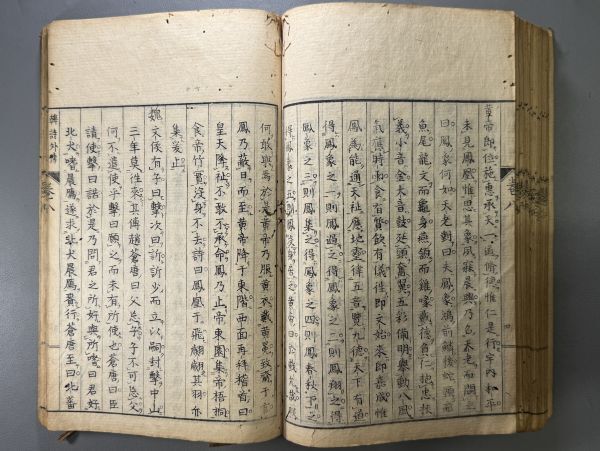 黃帝即位施惠承天一道脩德惟仁是行宇內和平
未見鳳凰惟思其象夙寐晨興乃召天老而問之
曰鳳象何如天老對曰夫鳳象鴻前麟後蛇頸而
魚尾龍文而龜身燕頷而雞喙戴德負仁抱忠挾
義小音金大音鼓延頸奮翼五彩備明舉動八風
氣應時雨食有質飲有儀往即文始來即嘉成惟
鳳為能通天祉應地靈律五音覽九德天下有道
得鳳象之一則鳳過之得鳳象之二則鳳翔之得
鳳象之三則鳳集之得鳳象之四則鳳春秋下之
得鳳象之五則鳳沒身居之黃帝曰於戲允哉朕
何敢與焉於是黃帝乃服黃衣戴黃冕致齋于宮
鳳乃蔽日而至黃帝降于東階西面再拜稽首曰
皇天降祉不敢不承命鳳乃止帝東園集帝梧桐
食帝竹實沒身不去詩曰鳳凰于飛翽翽其羽亦
集爰止
魏文侯有子曰擊次曰訴訴少而立以嗣封擊中山
三年莫往來其傅趙蒼唐曰父忘子子不可忘父
何不遣使乎擊曰願之而未有所使也蒼唐曰臣
請使擊曰諾於是乃問君之所好與所嗜曰君好
北犬嗜晨鴈遂求北犬晨鴈賫行蒼唐至曰北蕃
韓詩外傳 卷八